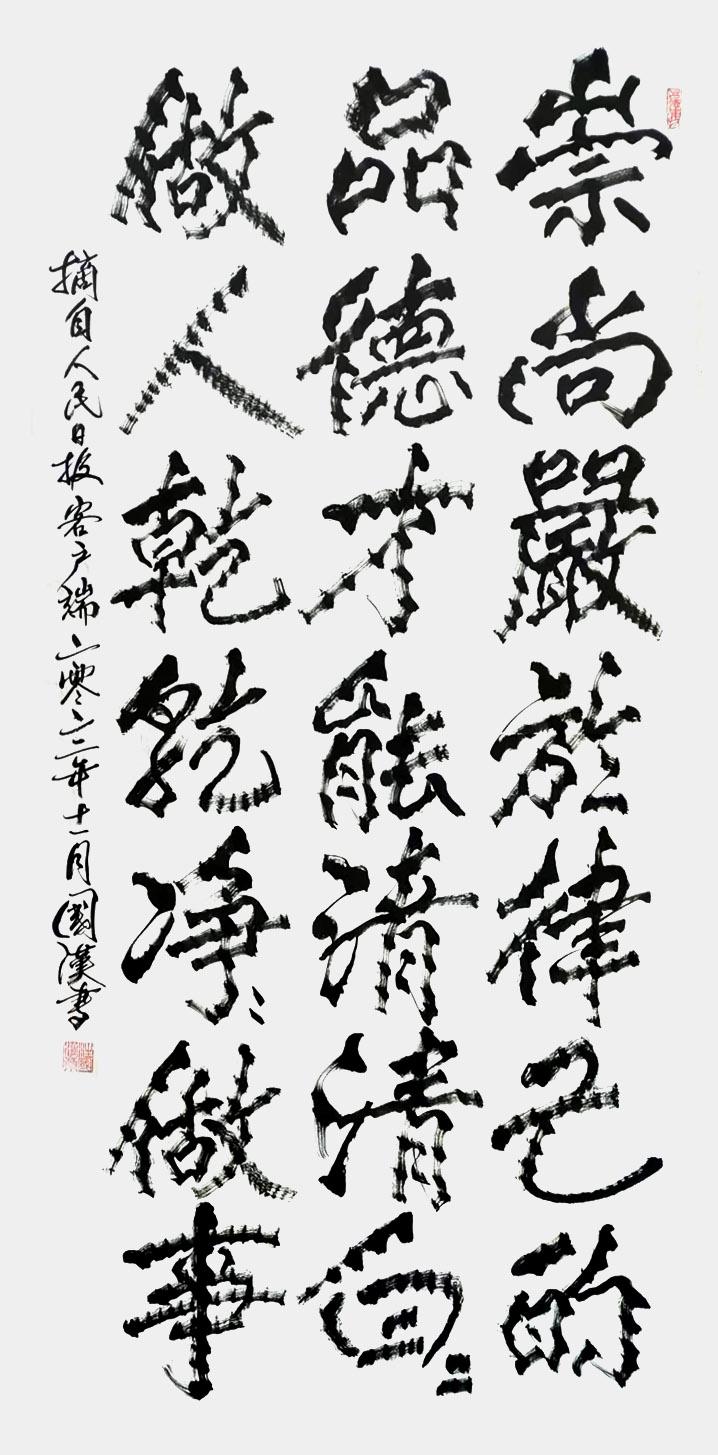 崇尚嚴於律己的
品德才能清清白〻
做人乾乾凈〻做事
摘自人民日报客户端二零二二年十一月國漢書